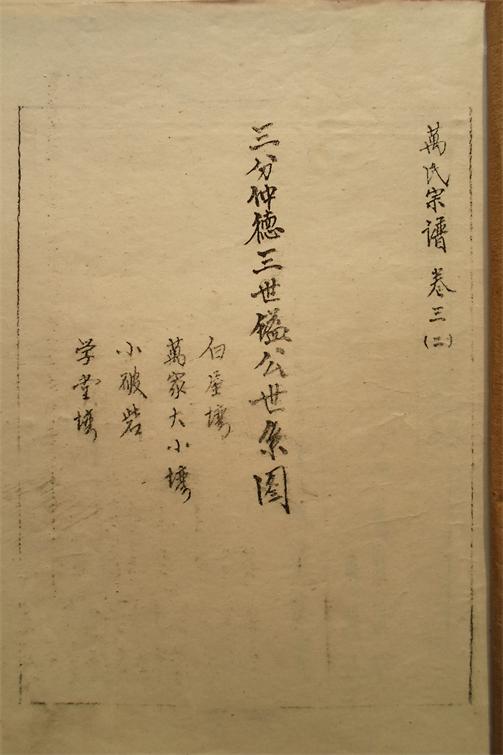 萬氏宗譜 卷三(二)
三分仲德三世鎰公世系图
白屋塆
萬家大小塆
小破砦
学堂塆